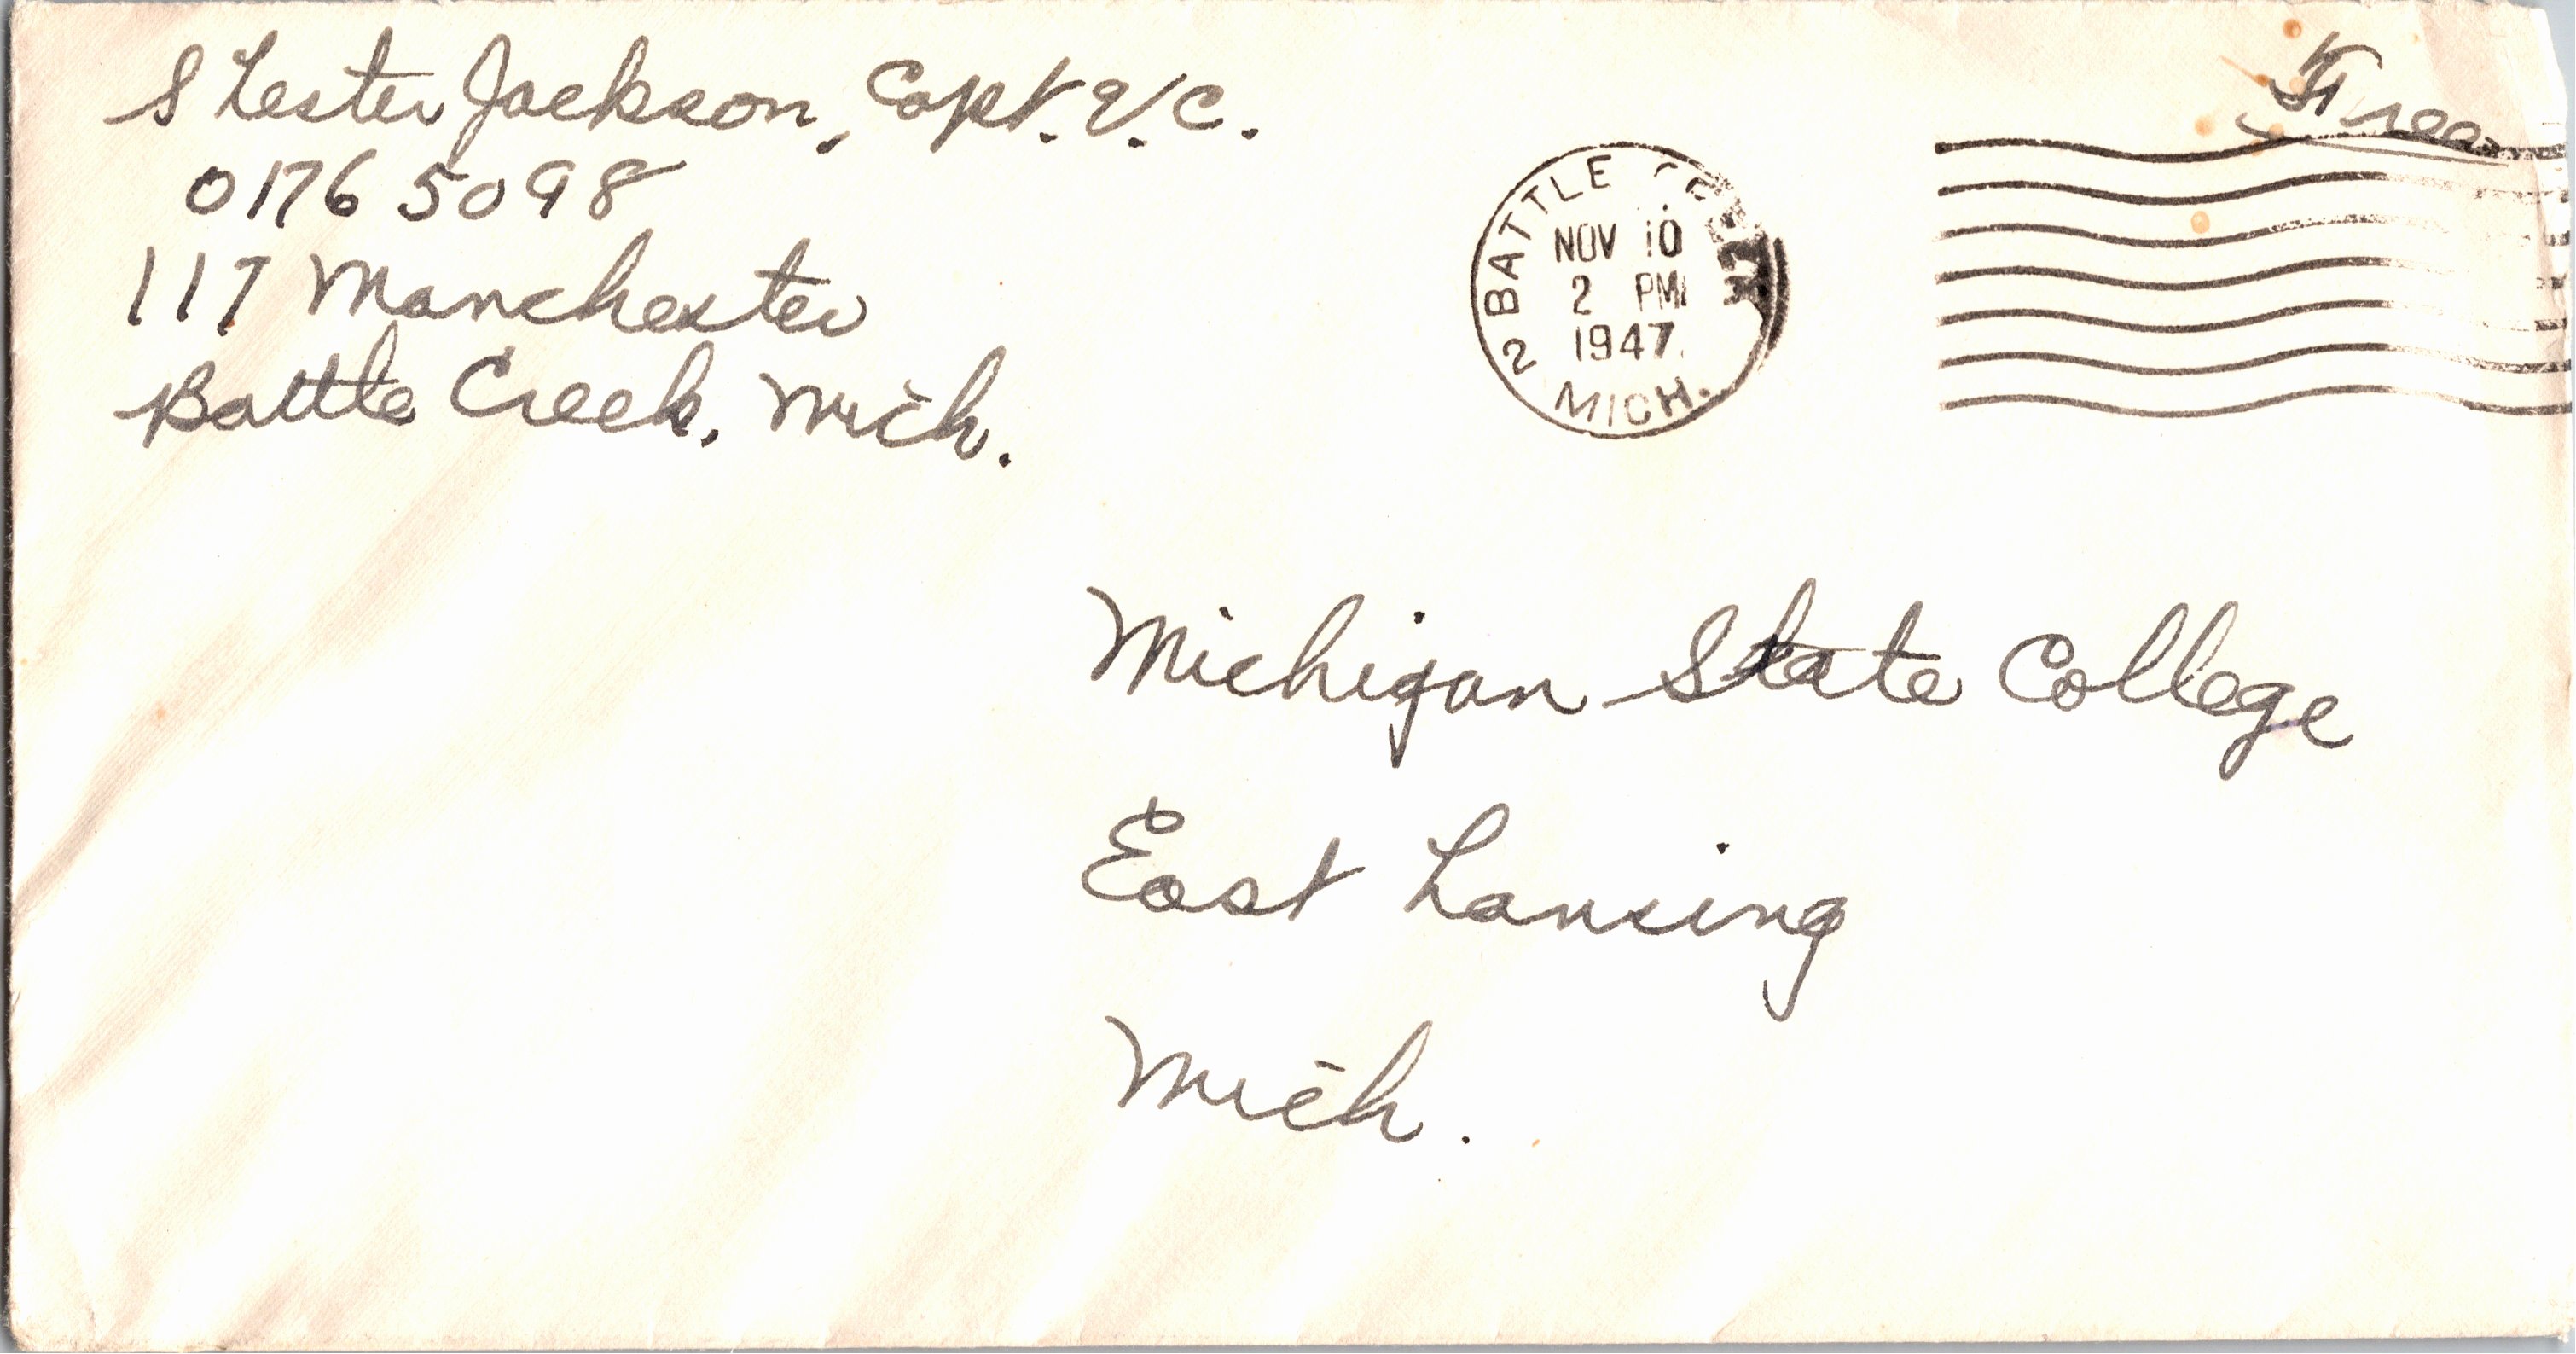 S Lester Jackson, Capt. V.C.
0176 5098
117 Manchester
Battle Creek, Mich.
Free
2 BATTLE CREEK
NOV 10
2 PM
1947
MICH.
Michigan State College
East Lansing
Mich.